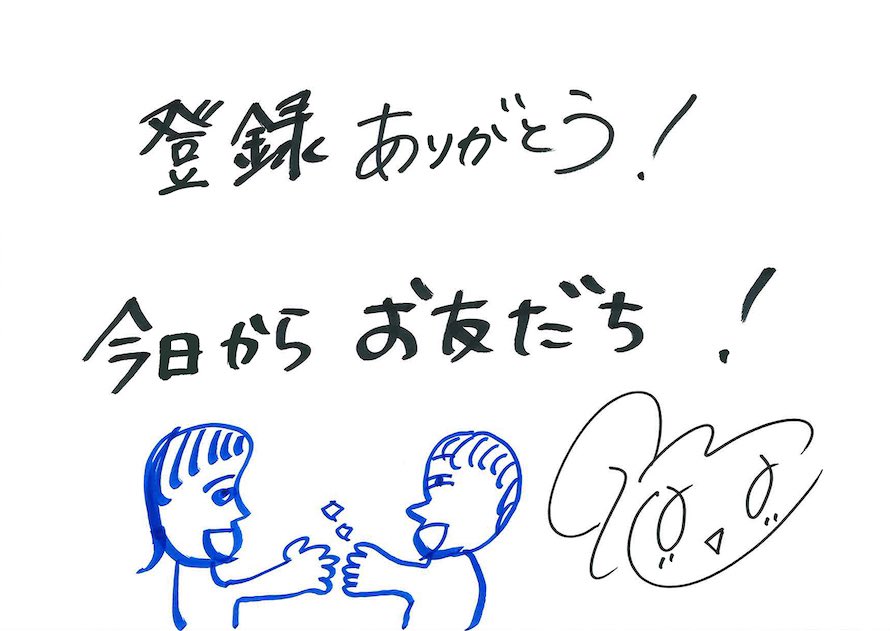 登録ありがとう！
今日からお友だち！